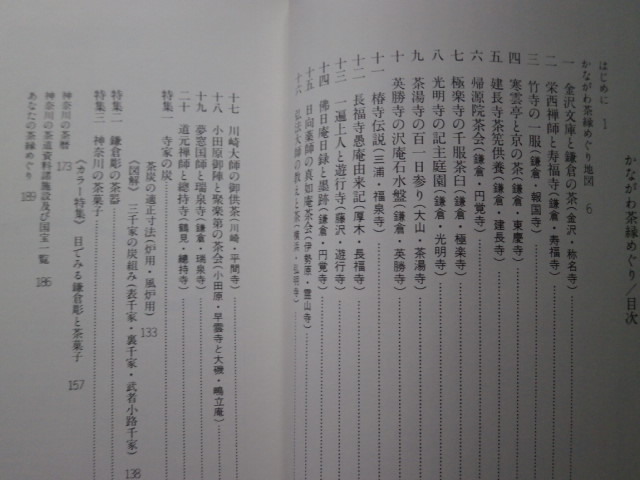 かながわ茶縁めぐり/目次
はじめに 1
かながわ茶縁めぐり地図 6
一 金沢文庫と鎌倉の茶(金沢・称名寺)
二 栄西禅師と寿福寺(鎌倉・寿福寺)
三 竹寺の一服(鎌倉・報国寺)
四 寒雲亭と京の茶(鎌倉・東慶寺)
五 建長寺茶筅供養(鎌倉・建長寺)
六 帰源院茶会(鎌倉・円覚寺)
七 極楽寺の千服茶臼(鎌倉・極楽寺)
八 光明寺の記主庭園(鎌倉・光明寺)
九 茶湯寺の百一日参り(大山・茶湯寺)
十 英勝寺の沢庵石水盤(鎌倉・英勝寺)
十一 椿寺伝説(三浦・福泉寺)
十二 長福寺愚庵由来記(厚木・長福寺)
十三 一遍上人と遊行寺(藤沢・遊行寺)
十四 佛日庵日録と墨跡(鎌倉・円覚寺)
十五 日向薬師の真如庵茶会(伊勢原・霊山寺)
十六 弘法大師の教えと茶(横浜・弘明寺)
十七 川崎大師の御供茶(川崎・平間寺)
十八 小田原御陣と聚楽第の茶会(小田原・早雲寺と大磯・鴫立庵)
十九 夢窓国師と瑞泉寺(鎌倉・瑞泉寺)
二十 道元禅師と總持寺(鶴見・總持寺)
特集一 寺家の炭
茶炭の適正寸法(炉用・風炉用) 133
(図解) 三千家の炭組み(表千家・裏千家・武者小路千家) 138
特集二 鎌倉彫の茶器
特集三 神奈川の茶菓子
(カラー特集) 目でみる鎌倉彫と茶菓子 157
神奈川の茶暦 173
神奈川の茶道資料諸施設及び国宝一覧 186
あなたの茶縁めぐり 189